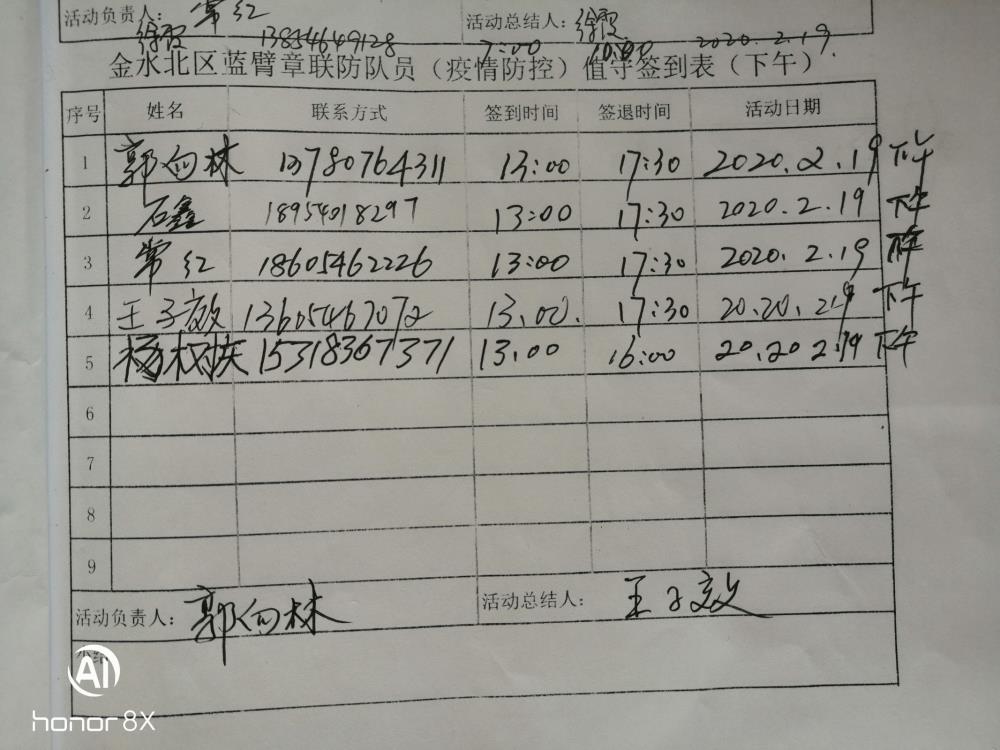 活动负责人: 常红 活动总结人: 徐
徐 13854649128 7:00 10:00 2020.2.19.
金水北区蓝臂章联防队员（疫情防控）值守签到表（下午）
序号 姓名 联系方式 签到时间 签退时间 活动日期
1 郭向林 13780764311 13:00 17:30 2020.2.19 下午
2 石鑫 18954018297 13:00 17:30 2020.2.19 下午
3 常红 18605462226 13:00 17:30 2020.2.19 下午
4 王子效 13605467072 13.00. 17:30 20.20.219 下午
5 杨树庆 15318367371 13.00 16:00 20.202.19 下午
6
7
8
9
活动负责人: 郭向林 活动总结人: 王子效
小结
AI
honor 8X